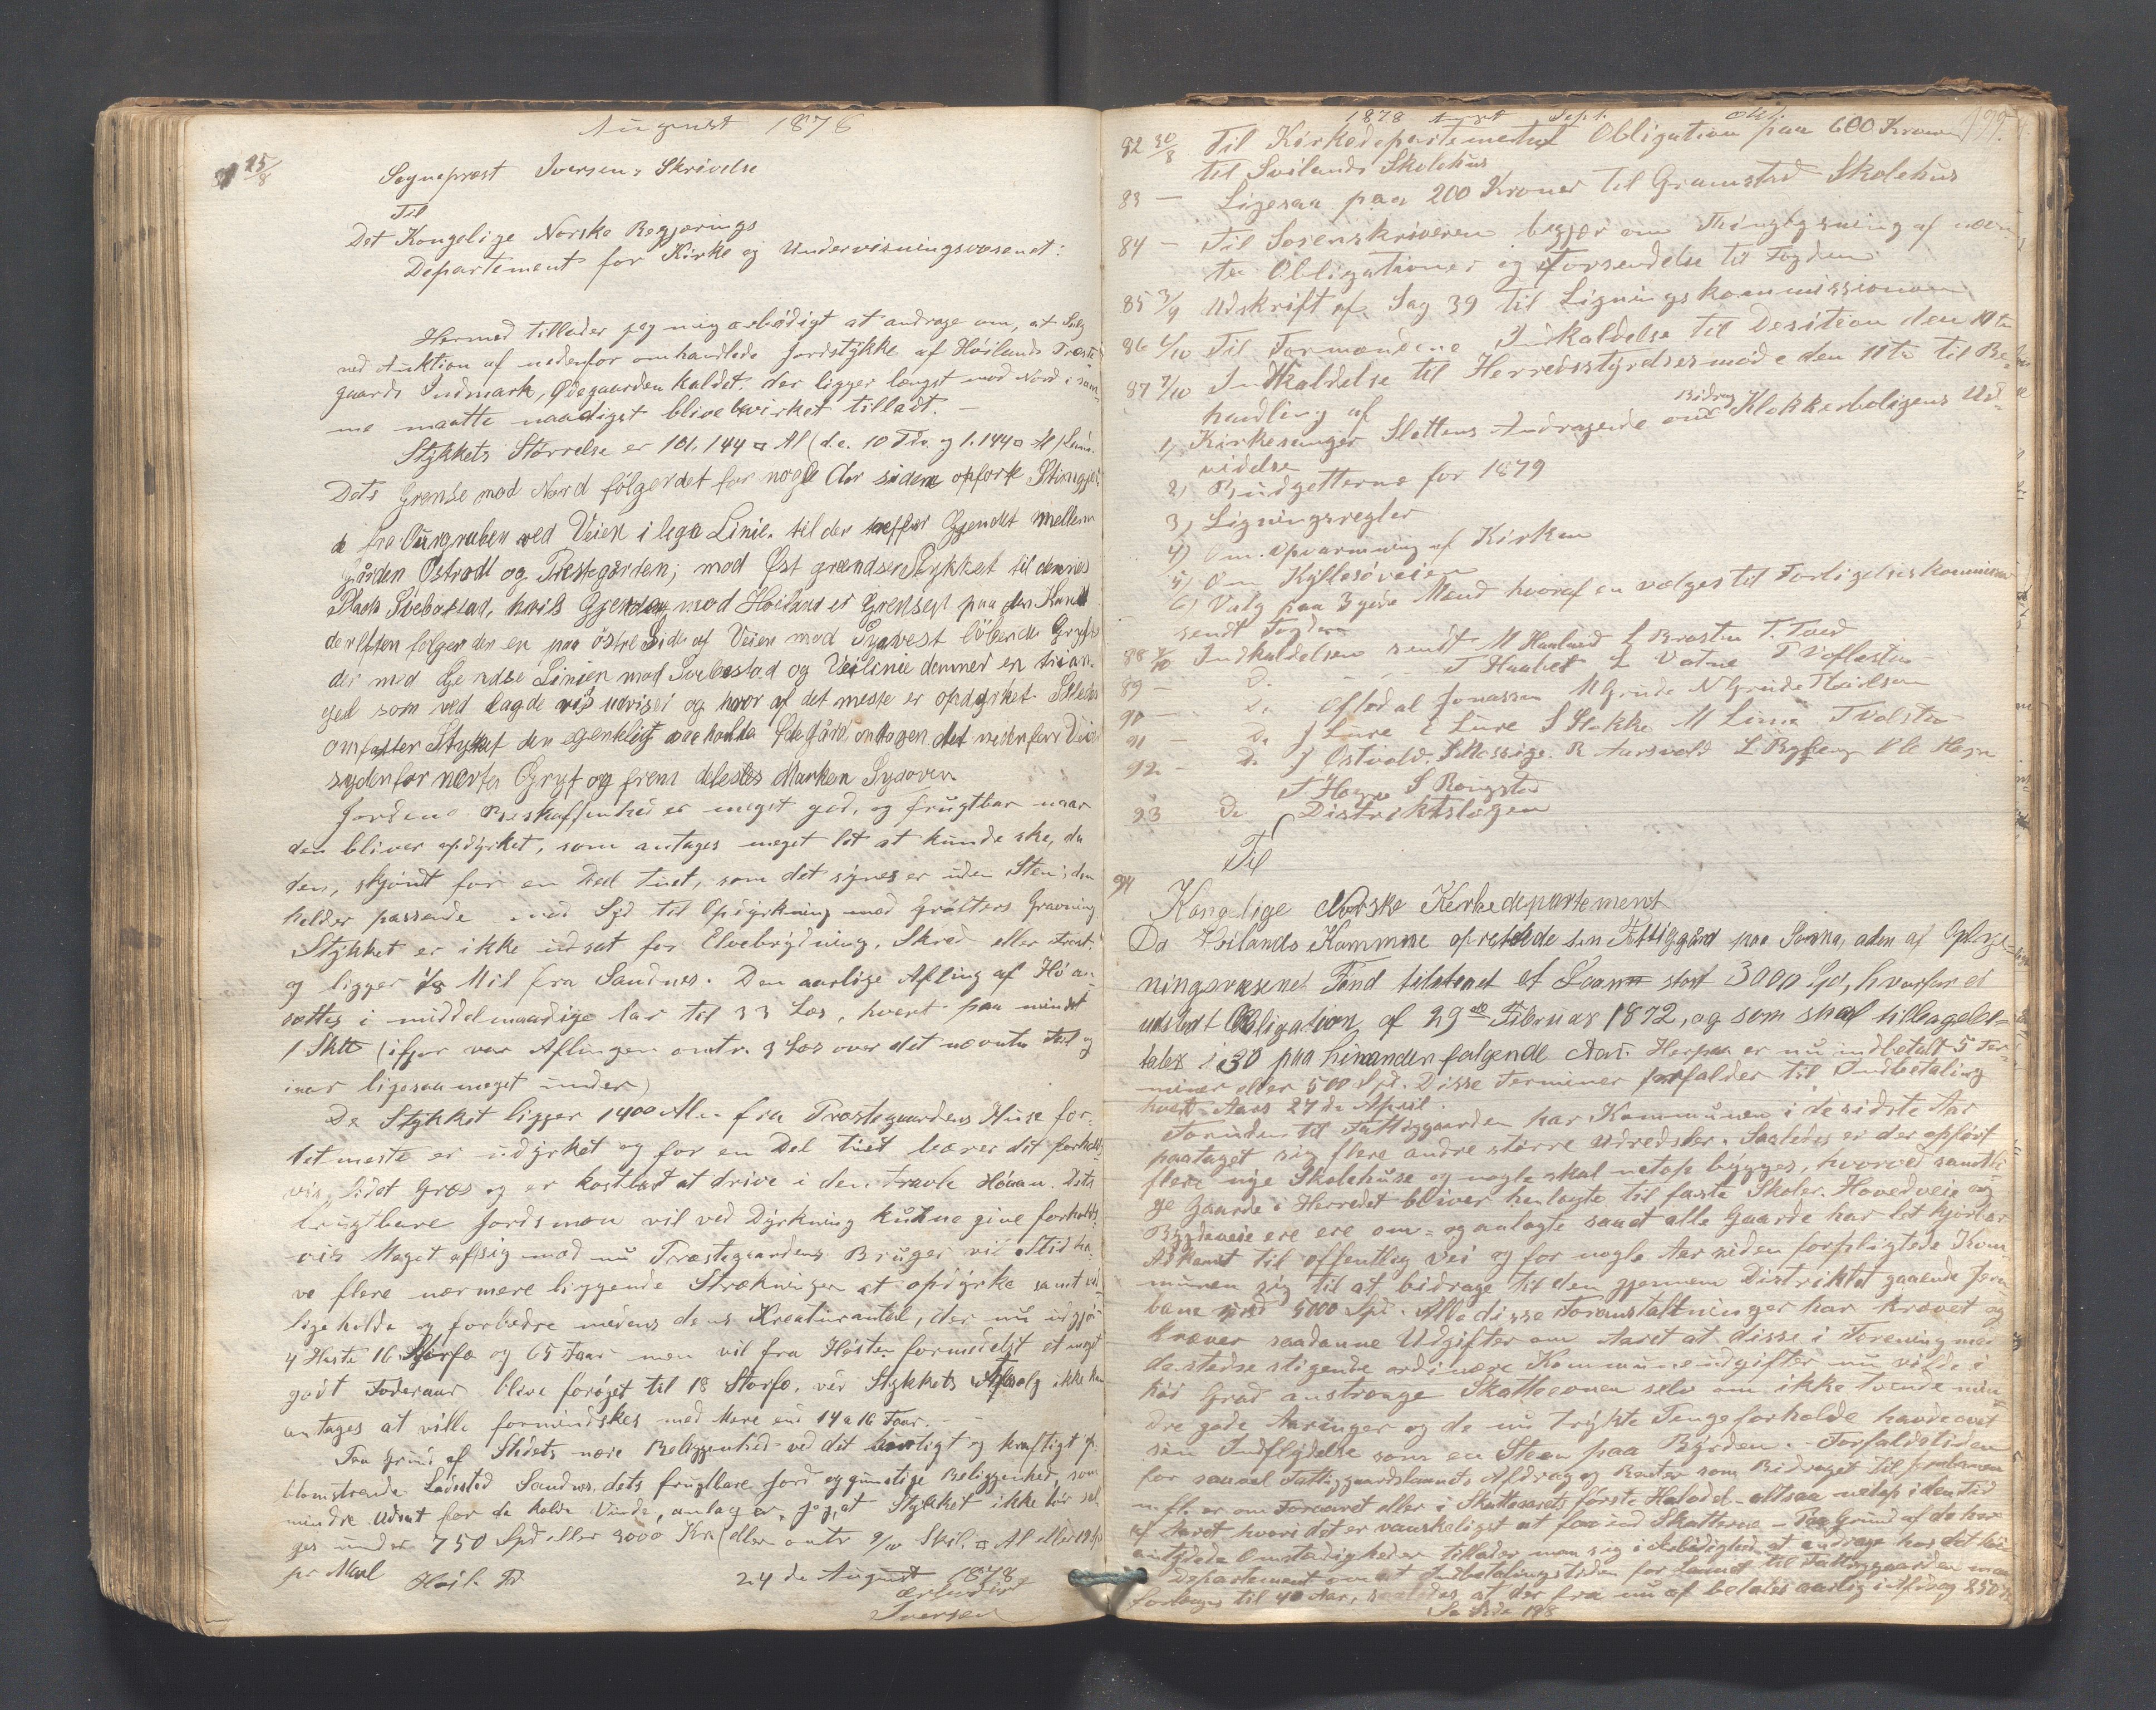 August 1878
25/8
Sogneprest Iversens Skrivelse
Til
Det Kongelige Norske Regjerings
Departement for Kirke og Undervisningsvæsenet:
Hermed tillader jeg mig ærbødigt at andrage om, at Salg
ved Auktion af nedenfor omhandlede Jordstykke af Høilands Præste
gaards Indmark, Ødegaarden kaldet, der ligger længst mod Nord i sam
me maatte naadigst blive bevirket tilladt. —
Stykkets Størrelse er 101,144 □ Al (d.e. 10 Tdr. og 1,144 □ Al
Dets Grense mod Nord følger det for nogle Aar siden opførte Stengjer
de fra Uurgraben ved Veien i lige Linie. til der treffer Gjerdet mellem
Gården Østradt og Prestegården; mod Øst grændser Stykket til dennes
Plads Svebastad, hvis Gjerde mod Høiland er Grensen paa den Kant
derefter følger den en paa østre Side af Veien mod Sydvest löbende Grøft
der med Grendse Linien mod Svebestad og Veilinie danner en trian-
gel som ved lagde rids udviser og hvor af det meste er opdyrket. Således
omfatter Stykket den egentlig saa kaldte Ødegård, undtagen det nedenfor Diis
sydenfor nævte Grøft og frem deles Marken Sydover
Jordens Beskaffenhed er meget god, og frugtbar naar
den bliver opdyrket, som antages meget let at kunde ske, da
den, skjønt for en Deel tuet, som det synes er uden Sten; den
helder passende mod Syd til Opdyrkning mod Grøfters Gravning
Stykket er ikke udsat for Elvebrydning, Skred eller Frost,
og ligger 1/8 Mil fra Sandnes. Den aarlige Afling af Hø an-
sættes i middelmaadige Aar til 33 Læs, hvert paa mindst
1 Sktt (ifjor var Aflingen omtr. 3 Læs over det nævnte Tal og
iaar ligesaameget under)
Da Stykket ligger 1400 Alen fra Præstegaardens Huse for-
detmeste er udyrket og for en Del tuet bærer det forholds
vis lidet Græs og er kostbart at drive i den travle Høaan. Dets
frugtbare Jordsmon vil ved Dyrkning kunne give forholds
vis Meget afsig med nu Præstegaardens Bruger vil altid ha
ve flere nærmere liggende Strækninger at opdyrke samt ved
ligeholde og forbedre medens dens Kreaturantal, der nu udgjør
4 Heste 16 Storfæ og 65 Faar men vil fra Høsten formedelst et meget
godt Foderaar blive forøget til 18 Storfæ, ved Stykkets Afsalg ikke kan
antages at ville formindskes med Mere end 14 a 16 Faar. —
Paa Grund af Stedets nære Beliggenhed ved det hurtigt og kraftigt op
blomstrende Ladested Sandnes, dets frugtbare Jord og gunstige Beliggenhed, som
mindre udsat for de kolde Vinde, antager jeg, at Stykket ikke bør sæl
ges under 750 Spd eller 3000 Kr. (eller omtr 9/10 Skil. □ Al eller
pr Maal
Høil. Pr 24 de August 1878
ærbødigst
Iversen
1878 August Sept. Okt. 199.
82 30/8 Til Kirkedepartementet Obligation paa 600 Kroner
til Svilands Skolehus
83 — Ligesaa paa 200 Kroner til Gramstad Skolehus
84 — Til Sorenskriveren begjær om Thinglysning af nævn
te Obligationer og Forsendelse til Fogden
85 3/9 Udskrift af Sag 39 til Ligningskommissionen
86 4/10 Til Formændene Indkaldelse til Desition den 10 de
87 7/10 Indkaldelse til Herredsstyrelsesmøde den 11te til Be-
handling af
1) Kirkesanger Slettens Andragende om Bidrag Klokkerboligens Ud-
videlse
2) Budgetterne for 1879
3) Ligningsregler
4) Om Opvarmning af Kirken
5) Om Kyllesøveien
6) Valg paa 3 gode Mænd hvoraf en vælges til Forligelseskommissær
sendt Fogden
88 7/10 Indkaldelsen sendt M Haaland L Braasten T. Tved
T Haabet L Vatne T
89 — Do Ofledal Jonassen M Grude N Grude
90 — Do J Lure E Lure S Stokke M Lima T Valster
91 — Do J Ostvold. S Mossige. R Aarsvold L Rygberg
92 — T Høgne S Ringstad
93 Do Distriktslægen
Til
94 Kongelige Norske Kirkedepartement
Da Høilands Kommune oprettede sin Fattiggård paa Sonna, aden af Oplys-
ningsvæsenet Fond tilstaaet et Laan stort 3000 Spd, hvorfor er
udstedt Obligation af 29de Februar 1872, og som skal tilbagebe-
tales i 30 paa hinanden følgende Aar. Herpaa er nu indbetalt 5 Ter-
miner eller 500 Spd. Disse Terminer forfalder til Indbetaling
hvert Aars 27 de April.
Foruden til Fattiggaarden har Kommunen i de sidste Aar
paataget sig flere andre større Udredsler. Saaledes er der opført
flere nye Skolehuse og nogle skal netop bygges, hvorved samtli-
ge Gaarde i Herredet bliver henlagte til faste Skoler. Hovedveie og
Bygdeveie ere ere om- og anlagte saaat alle Gaarde har let kjørbar
Adkomst til offentlig Vei og for nogle Aar siden forpligtede Kom-
munen sig til at bidrage til den gjennem Distriktet gaaende Jern
bane med 5000 Spd. Alle disse Foranstaltninger har krævet og
kræver saadanne Udgifter om Aaret at disse i Forening med
de stedse stigende ordinære Kommuneudgifter nu vilde i
høi Grad anstrænge Skatteevnen selv om ikke tvende min-
dre gode Aaringer og de nu trykte Pengeforholde havde øvet
sin Indflydelse som en Steen paa Byrden. — Forfaldstiden
for saavel Fattiggaardslaanets Afdrag og Renter som Bidraget til Jernbanen
m.fl. er om Foraaret eller i Skatteaarets første Halvdel — altsaa netop i den Tid
af Aaret hvori det er vanskeligst at faa ind Skatterne — Paa Grund af de her
antydede Omstændigheder tillader man sig i ærbødighed at andrage hos det høie
Departement om at Indbetalingstiden for Laanet til Fattiggaarden maa
forlænges til 40 Aar, saaledes at der fra nu af betales aarlig i Afdrag 250 Kr